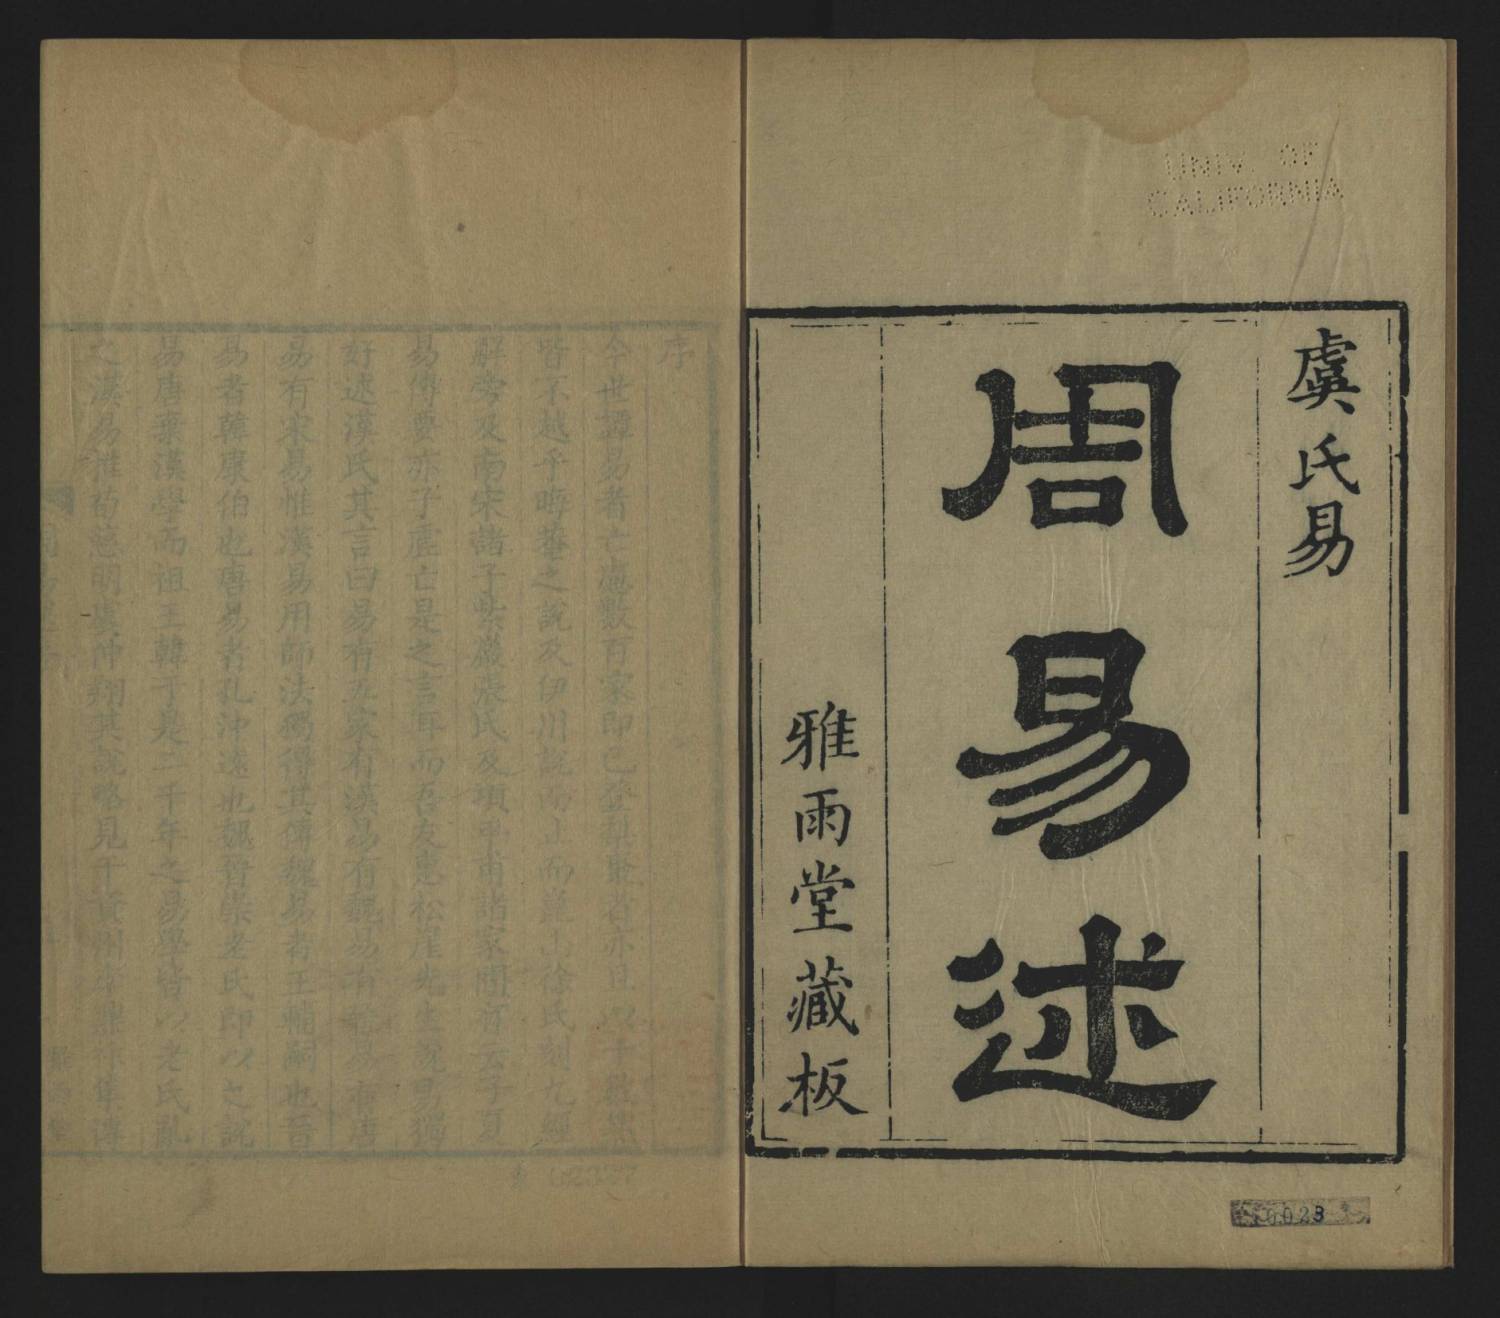 UNIV. OF
CALIFORNIA
虞氏易
周易述
雅雨堂藏板
6023
序
今世譚易者亡慮數百家即已災梨棗者亦且以十數
皆不越乎晦菴之說及伊川說而止而崑山徐氏刻九經
解旁及南宋諸子紫巖張氏及項平甫諸家間有云子夏
易傳要亦子虛亡是之言耳而吾友惠松崖先生說易獨
好述漢氏其言曰易有五家有漢易有魏易有晉易有唐
易有宋易惟漢易用師法獨得其傳魏易者王輔嗣也晉
易者韓康伯也唐易者孔沖遠也魏晉崇老氏即以之說
易唐棄漢學而祖王韓于是二千年之易學皆以老氏亂
之漢易惟荀慈明虞仲翔其說略見于資州李鼎祚